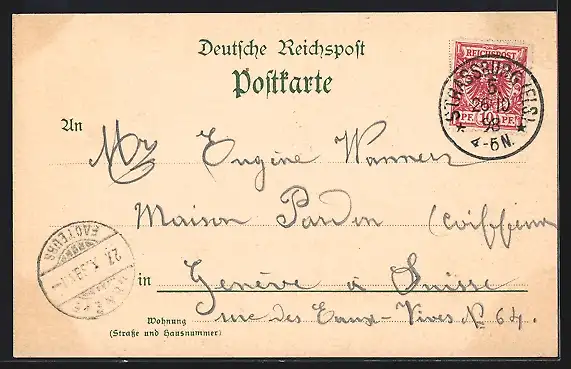 Deutsche Reichspost
Postkarte
REICHSPOST
10
PF. PF.
STRASSBURG (ELS)
5
26 10
98
4-5N.
An
Mr Eugène Wanner
Maison Pardon Coiffeur
in Genève à Suisse
Wohnung
(Straße und Hausnummer)
rue des Eaux-Vives No 64.
FACTEURS
27. X. 98
GENÈVE